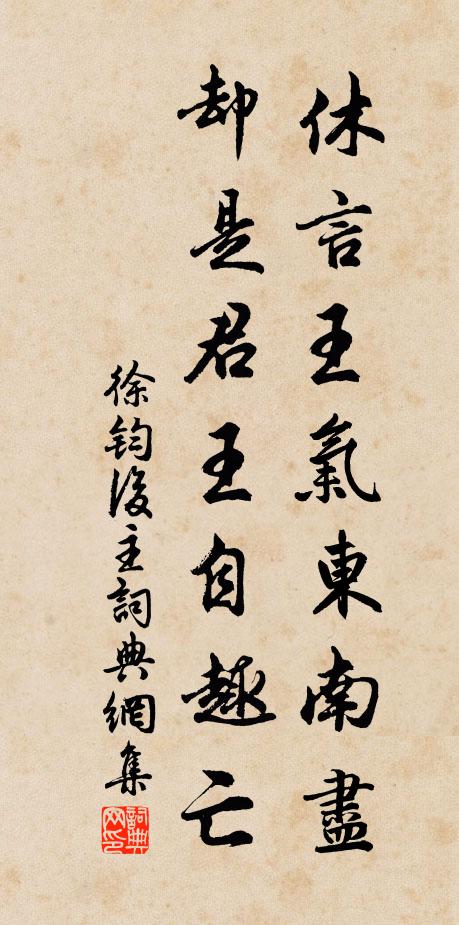 休言王氣東南盡
却是君王自趣亡
徐鈞後主詞典網集
詞典網印